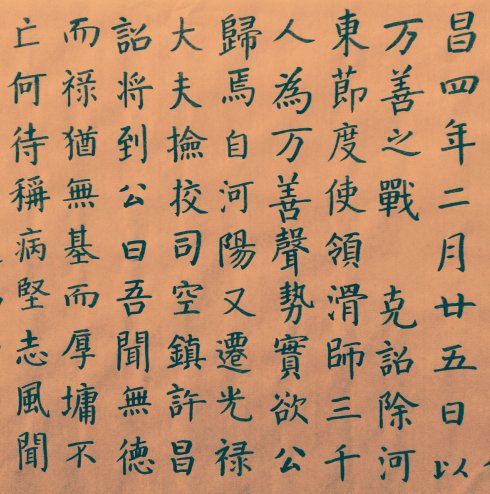 昌四年二月廿五日以
万善之戰 克詔除河
東節度使領滑師三千
人為万善聲勢實欲公
歸焉自河陽又遷光禄
大夫撿挍司空鎮許昌
詔将到公曰吾聞無德
而禄猶無基而厚墉不
亡何待稱病堅志風聞